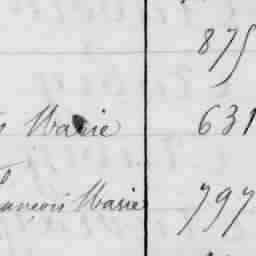 875
Marie 631
François Marie 797